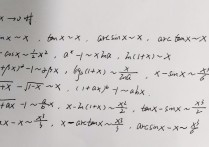 x→0 时
x ~ x, tanx ~ x, arcsinx ~ x, arctanx ~ x
cosx ~ ½x², aˣ-1 ~ xlna, ln(1+x) ~ x
-1 ~ βx, logₐ(1+x) ~ x/lna, x-sinx ~ x³/6
-√1-x ~ x, (1+ax)ᵇ-1 ~ abx
-1 ~ a/b x, x-ln(1+x) ~ x²/2, tanx-sinx ~ x³/2
x-x ~ x³/3, x-arctanx ~ x³/3, arcsinx-x ~ x³/6